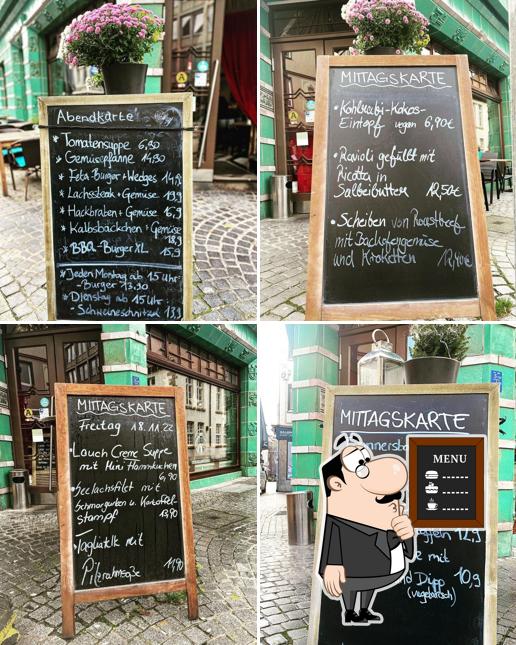 Abendkarte
* Tomatensuppe 6,90
* Gemüsepfanne 14,90
* Feta-Burger + Wedges
* Lachssteak + Gemüse
* Hackbraten + Gemüse
* Kalbsbäckchen + Gemüse
18,9
* BBQ-Burger XL
* Jeden Montag ab 15 Uhr
-Burger 13.90
* Dienstag ab 15 Uhr
- Schweineschnitzel
MITTAGSKARTE
• Kohlrabi-Kokos-
Eintopf vegan 6,90€
• Ravioli gefüllt mit
Ricotta in
Salbeibutter 12,50€
• Scheiben von Roastbeef
mit Backofengemüse
und Kroketten
MITTAGSKARTE
Freitag 18.11.22
• Lauch Creme Suppe
mit Mini Flammkuchen
6,90
• Seelachsfilet mit
Schmorgurken u. Kartoffel-
stampf 13,90
mit
Pilzrahmsoße 11,90
MITTAGSKARTE
MENU
12,9
mit
Dipp 10,9
(vegetarisch)